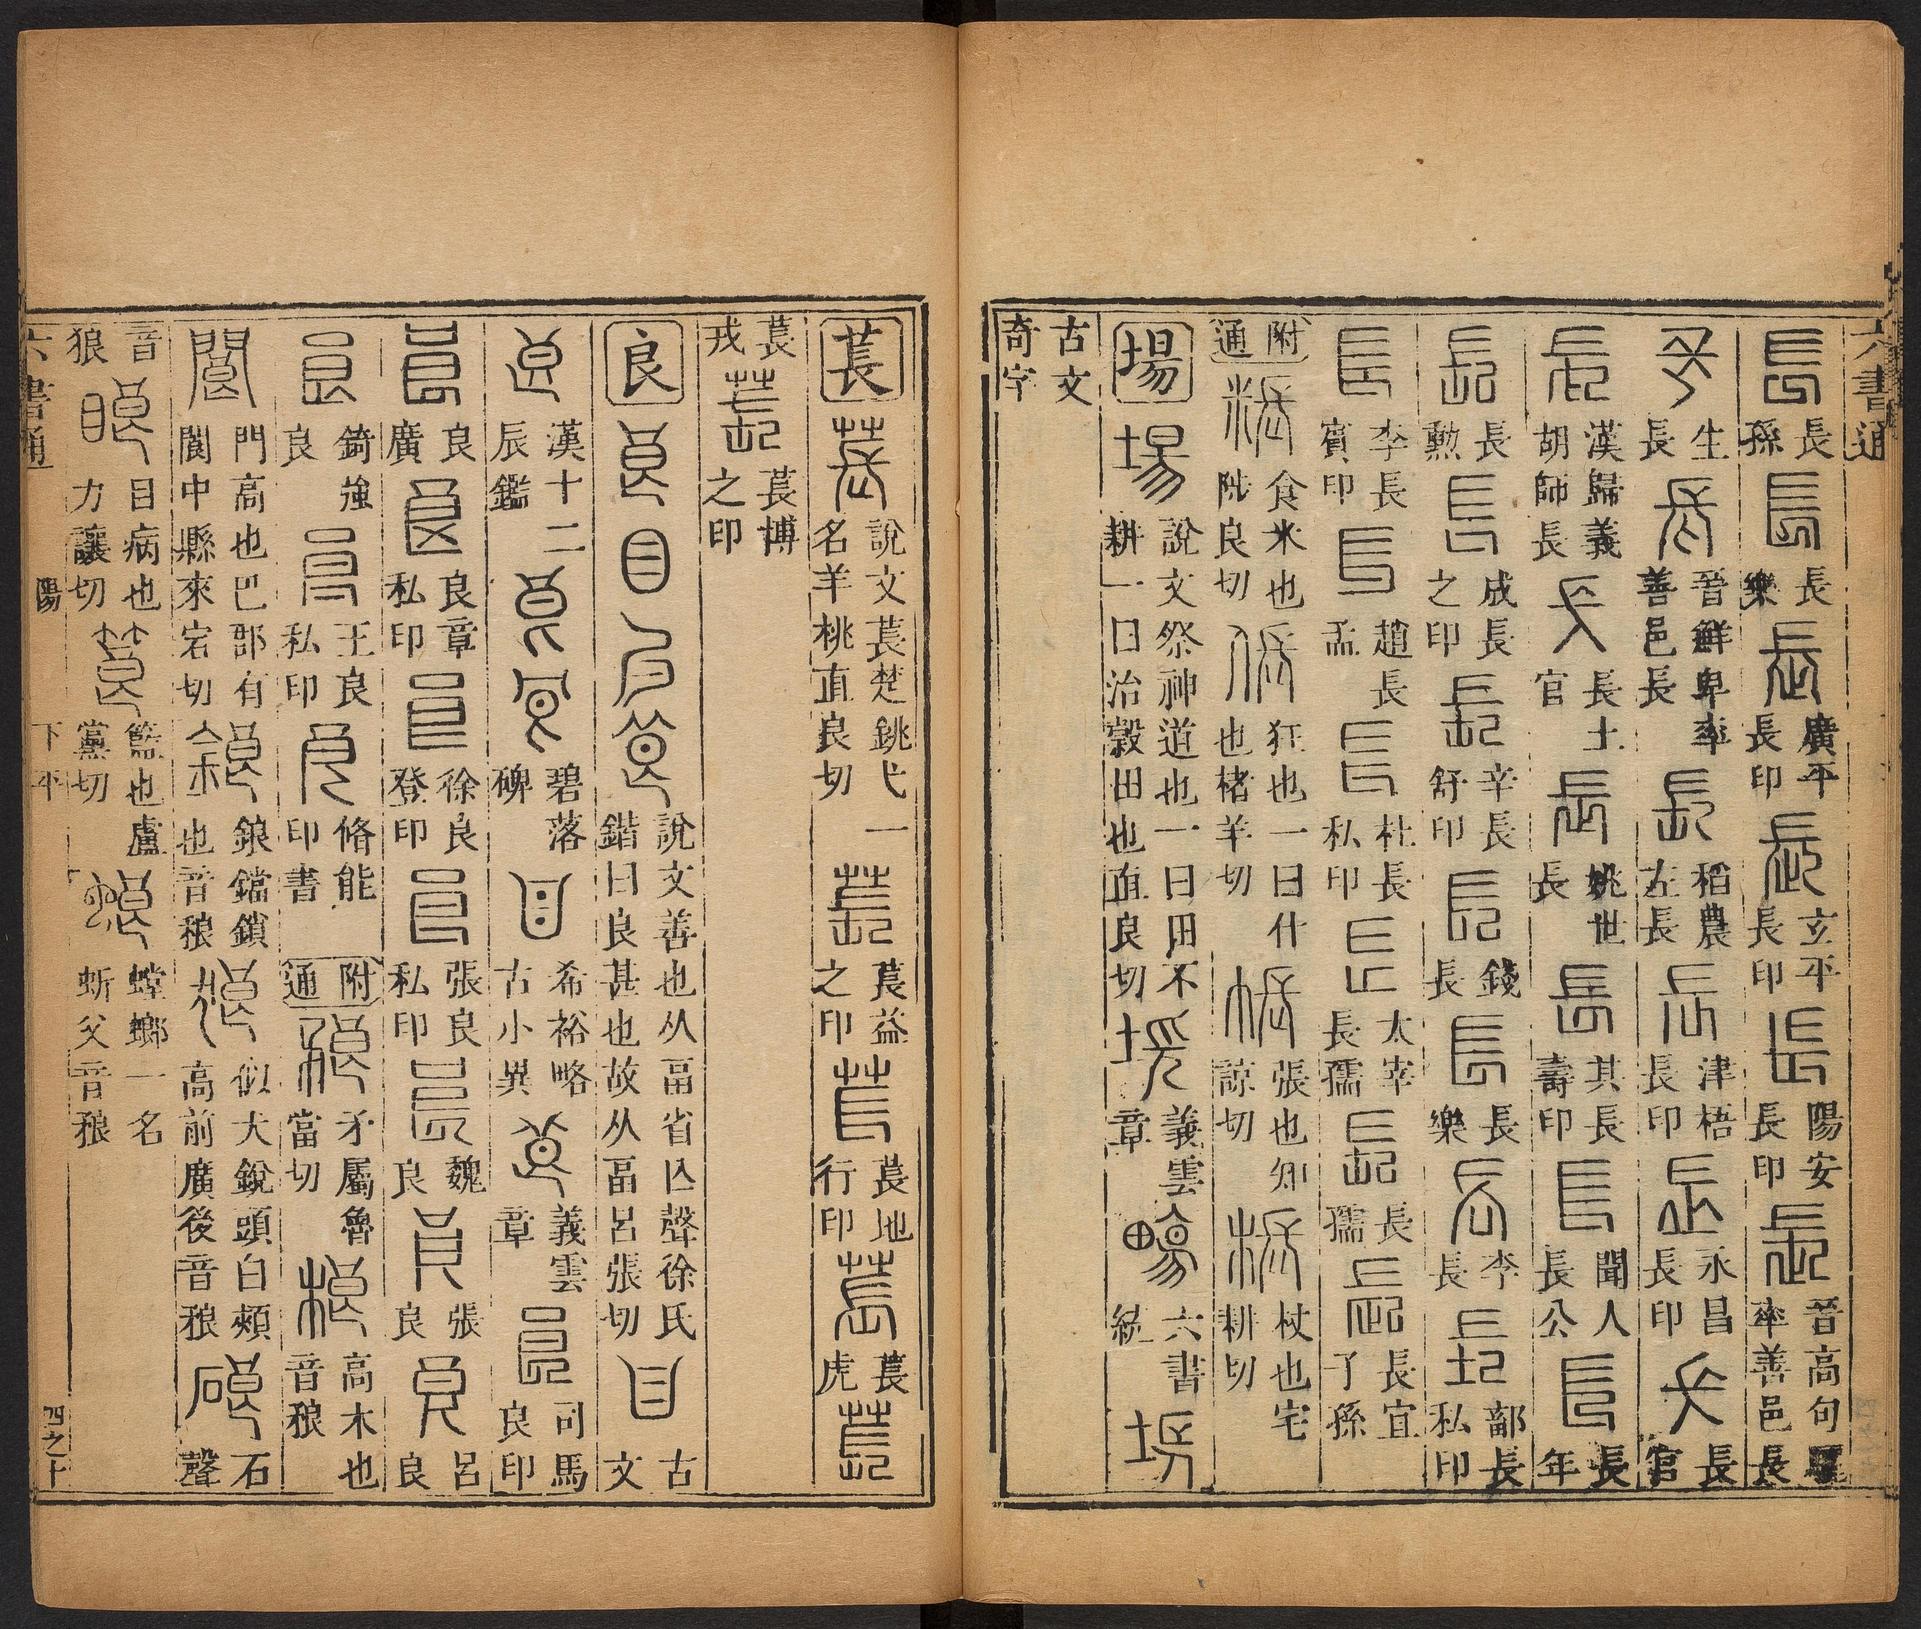 六書通
長孫 長樂 廣平長印 玄平長印 陽安長印 晉高句驪率善邑長
生長 晉鮮卑率善邑長 稻農左長 津梧長印 永昌長印 長官
漢歸義胡師長 長士官 姚世長 其長壽印 聞人長公 長年
長勲 成長之印 辛長舒印 錢長 長樂 李長 鄐長私印
李長賓印 趙長孟 杜長私印 太宰長孺 長孺 長宜子孫
附通 食米也陟良切 狂也一曰什也楮羊切 張也知諒切 杖也宅耕切
場 說文祭神道也一曰田不耕一曰治穀田也直良切 義雲章 六書統
古文奇字
萇 說文萇楚銚弋一名羊桃直良切 萇益之印 萇地行印 萇虎
萇戎 萇博之印
良 說文善也从畐省亾聲徐氏鍇曰良甚也故从畐呂張切 古文
漢十二辰鑑 碧落碑 希裕略古 小異 義雲章 司馬良印
良廣 良章私印 徐良登印 張良私印 魏良 張良 呂良
錡強良 王良私印 脩能印書 附通 矛屬魯當切 高木也音稂
門高也巴郡有閬中縣來宕切 鋃鐺鎖也音稂 似犬銳頭白頰高前廣後音稂 石聲
音狼 目病也力讓切 籃也盧黨切 螳螂一名蚚父音稂
六書通 陽 下平 四之十